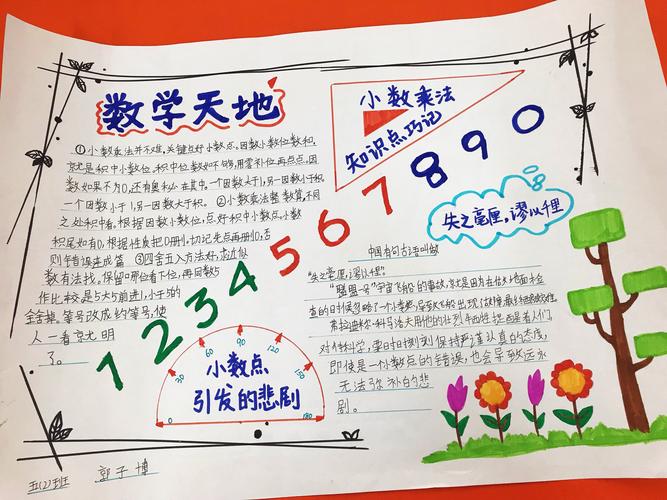 数学天地
①小数乘法并不难,关键点好小数点。因数小数位数和,
就是积中小数位。积中位数如不够,用零补位再点点。因
数如果不为0,还有奥秘在其中。一个因数大于1,另一因数小于积。
一个因数小于1,另一因数大于积。②小数乘法整数算,不同
之处积中看。根据因数小数位,点好积中小数点。小数
积尾如有0,根据性质把0册。切记先点再册10,否
则错误连成篇 ③四舍五入方法好,
数有法找,保留哪位看下位,再同数5
作比较是5大5前进1,小于5的
全舍掉,等号改成约等号,使
人一看就明
了。
小数乘法
知识点巧记
1234567890
失之毫厘,谬以千里
中国有句古语叫做
“失之毫厘,谬以千里”。
“联盟一号”宇宙飞船的事故,就是因为在做地面检
查的时候忽略了一个小数点,导致飞船出现了故障,
对待科学,要时时刻刻保持严谨认真的态度,
即使是一个小数点的错误,也会导致永远
无法弥补的悲
剧。
小数点
引发的悲剧
0 30 60 90 120 150 180
五(2)班 郭子博